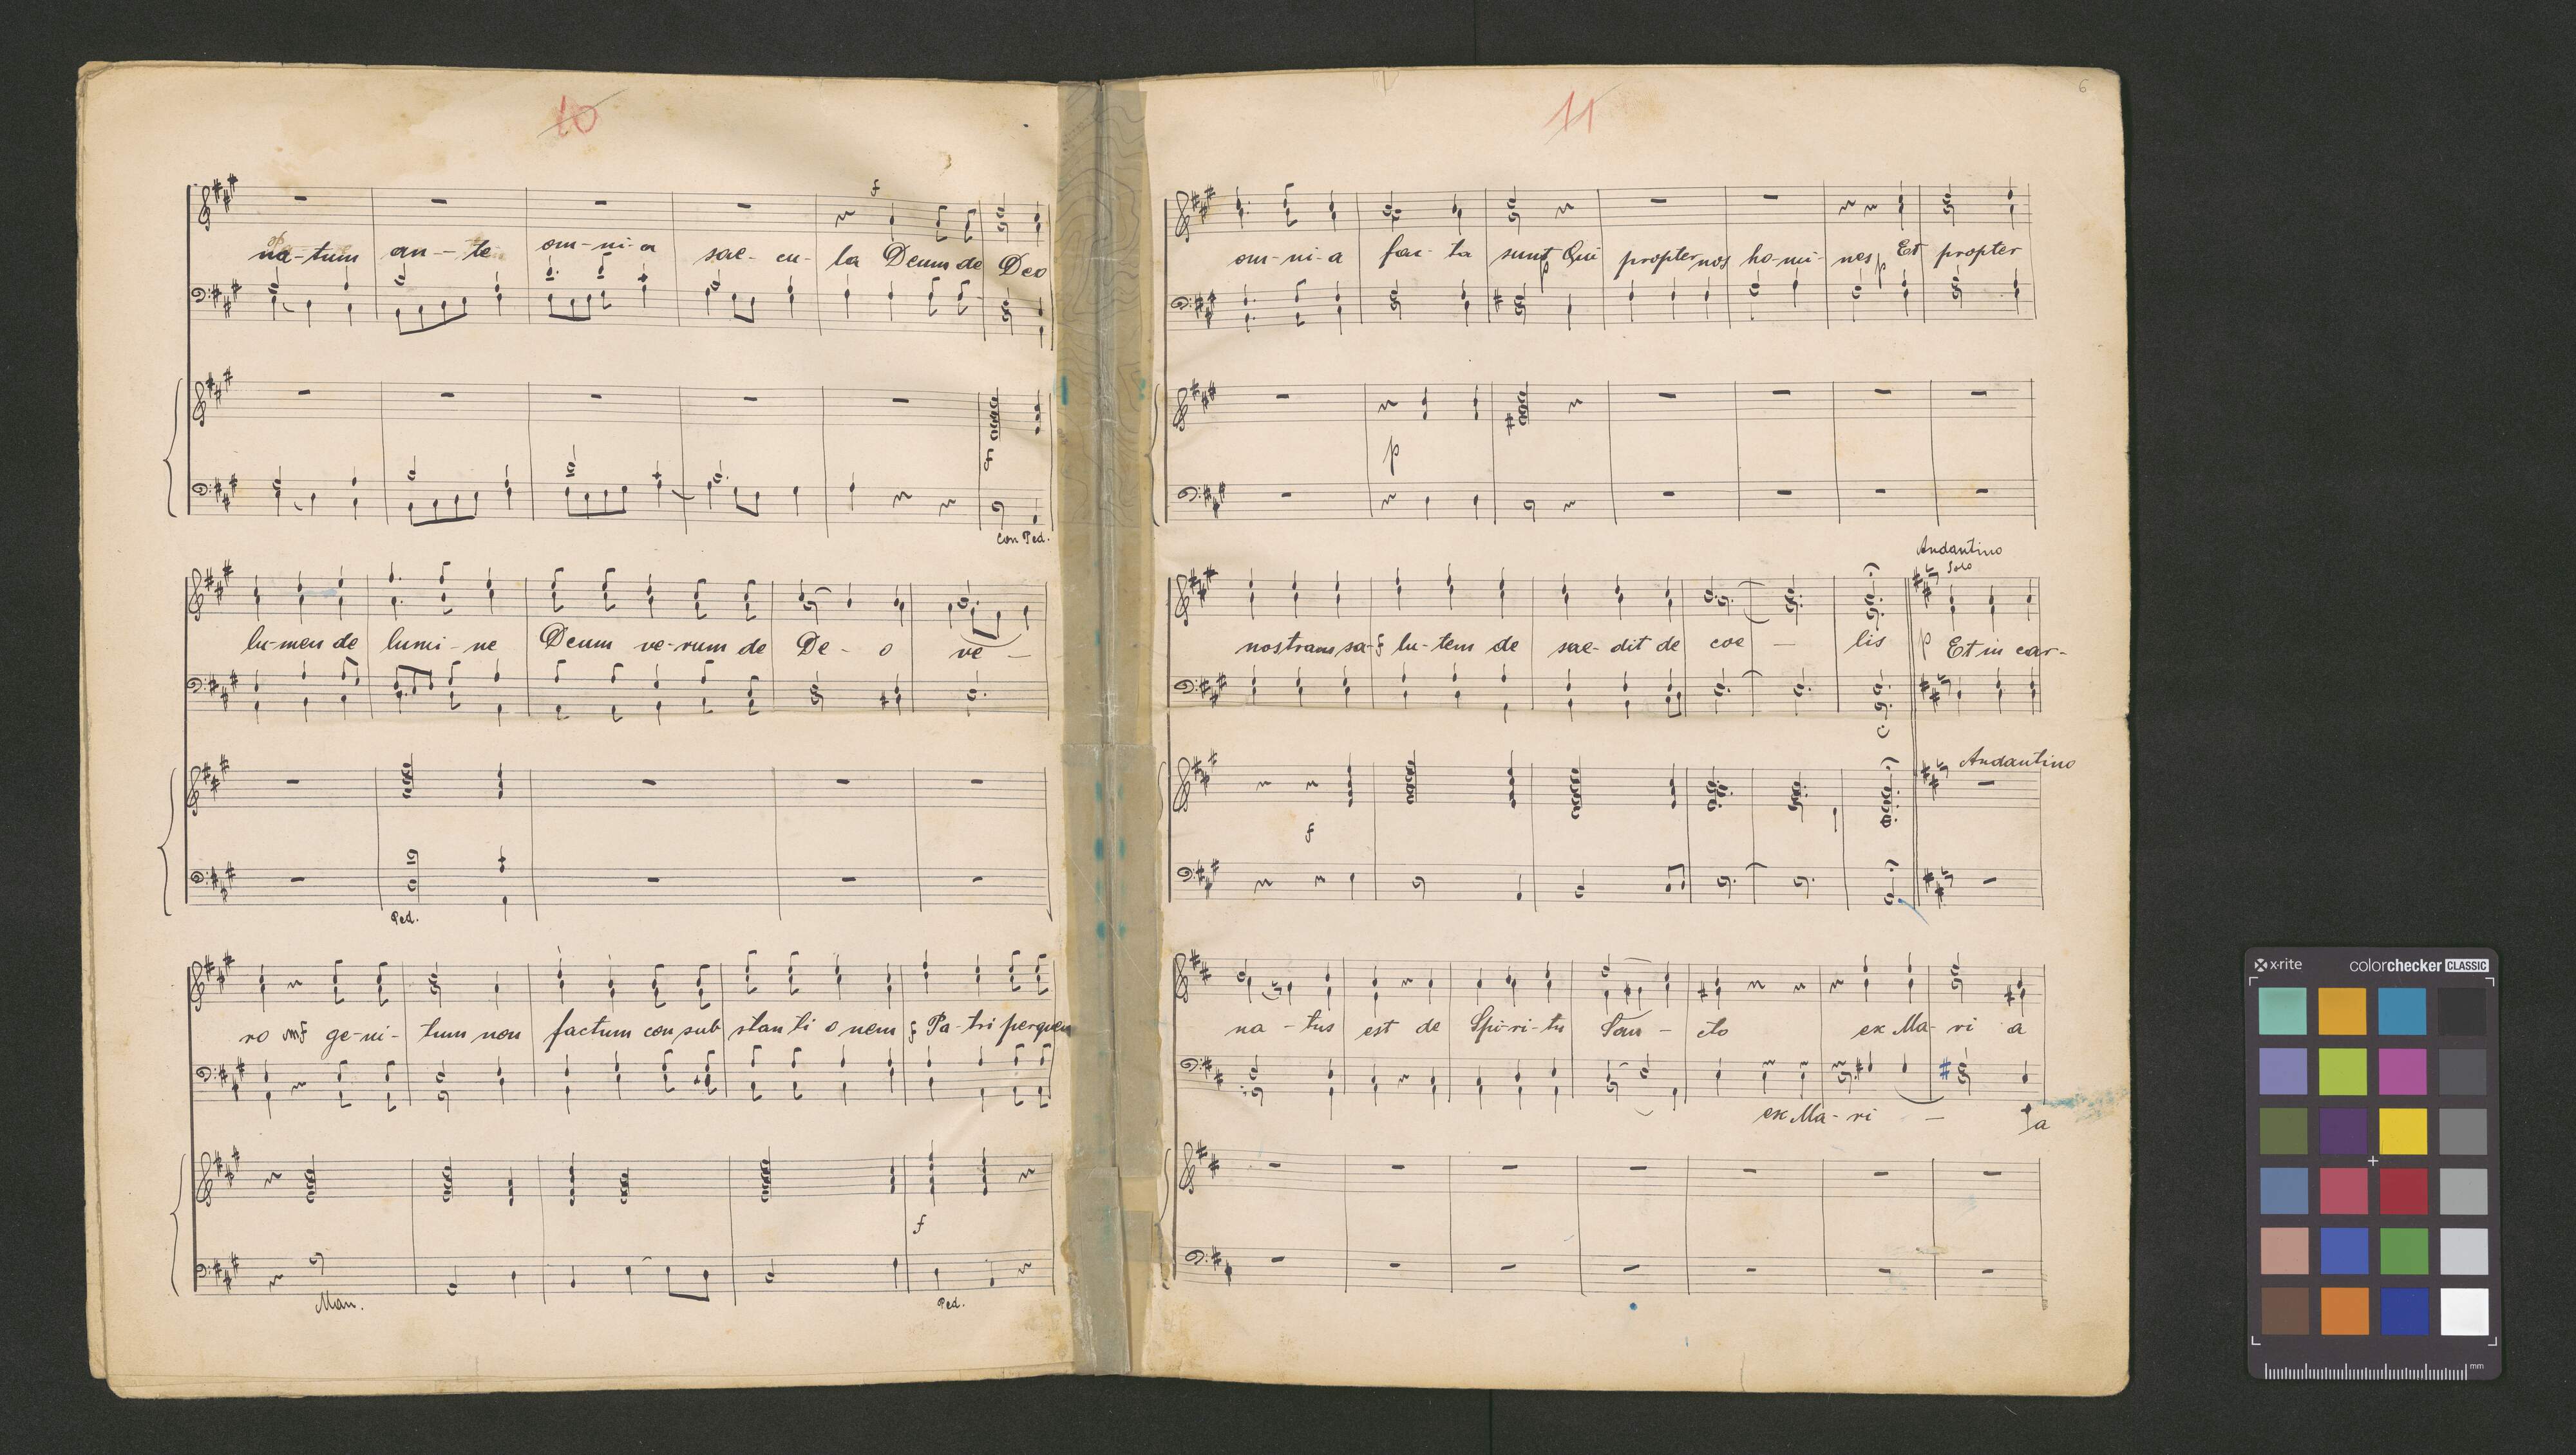 10
f
na-tum an--te om-ni-a sae-cu-la Deum de Deo
f
Con Ped.
lu-men de lumi-ne Deum ve-rum de De-o ve-
Ped.
ro mf ge-ni-tum non factum con sub stan ti o nem f Pa-tri per quem
f
Man. Ped.
11
6
om-ni-a fac-ta sunt p Qui propter nos ho-mi-nes p Et propter
p
Andantino
Solo
nostram sa-f lu-tem de sae-dit de coe — lis p Et in car-
Andantino
f
na-tus est de Spi-ri-tu San-cto ex Ma-ri a
ex Ma-ri — a
x-rite colorchecker CLASSIC
mm